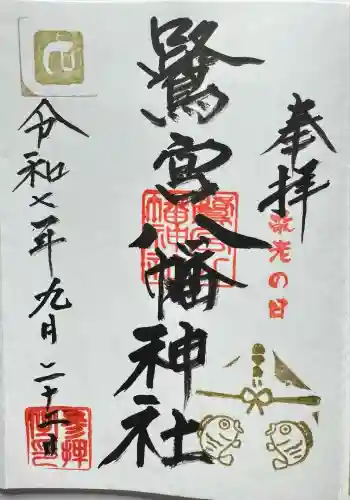 奉拝
敬老の日
鷺宮八幡神社
令和七年九月二十二日